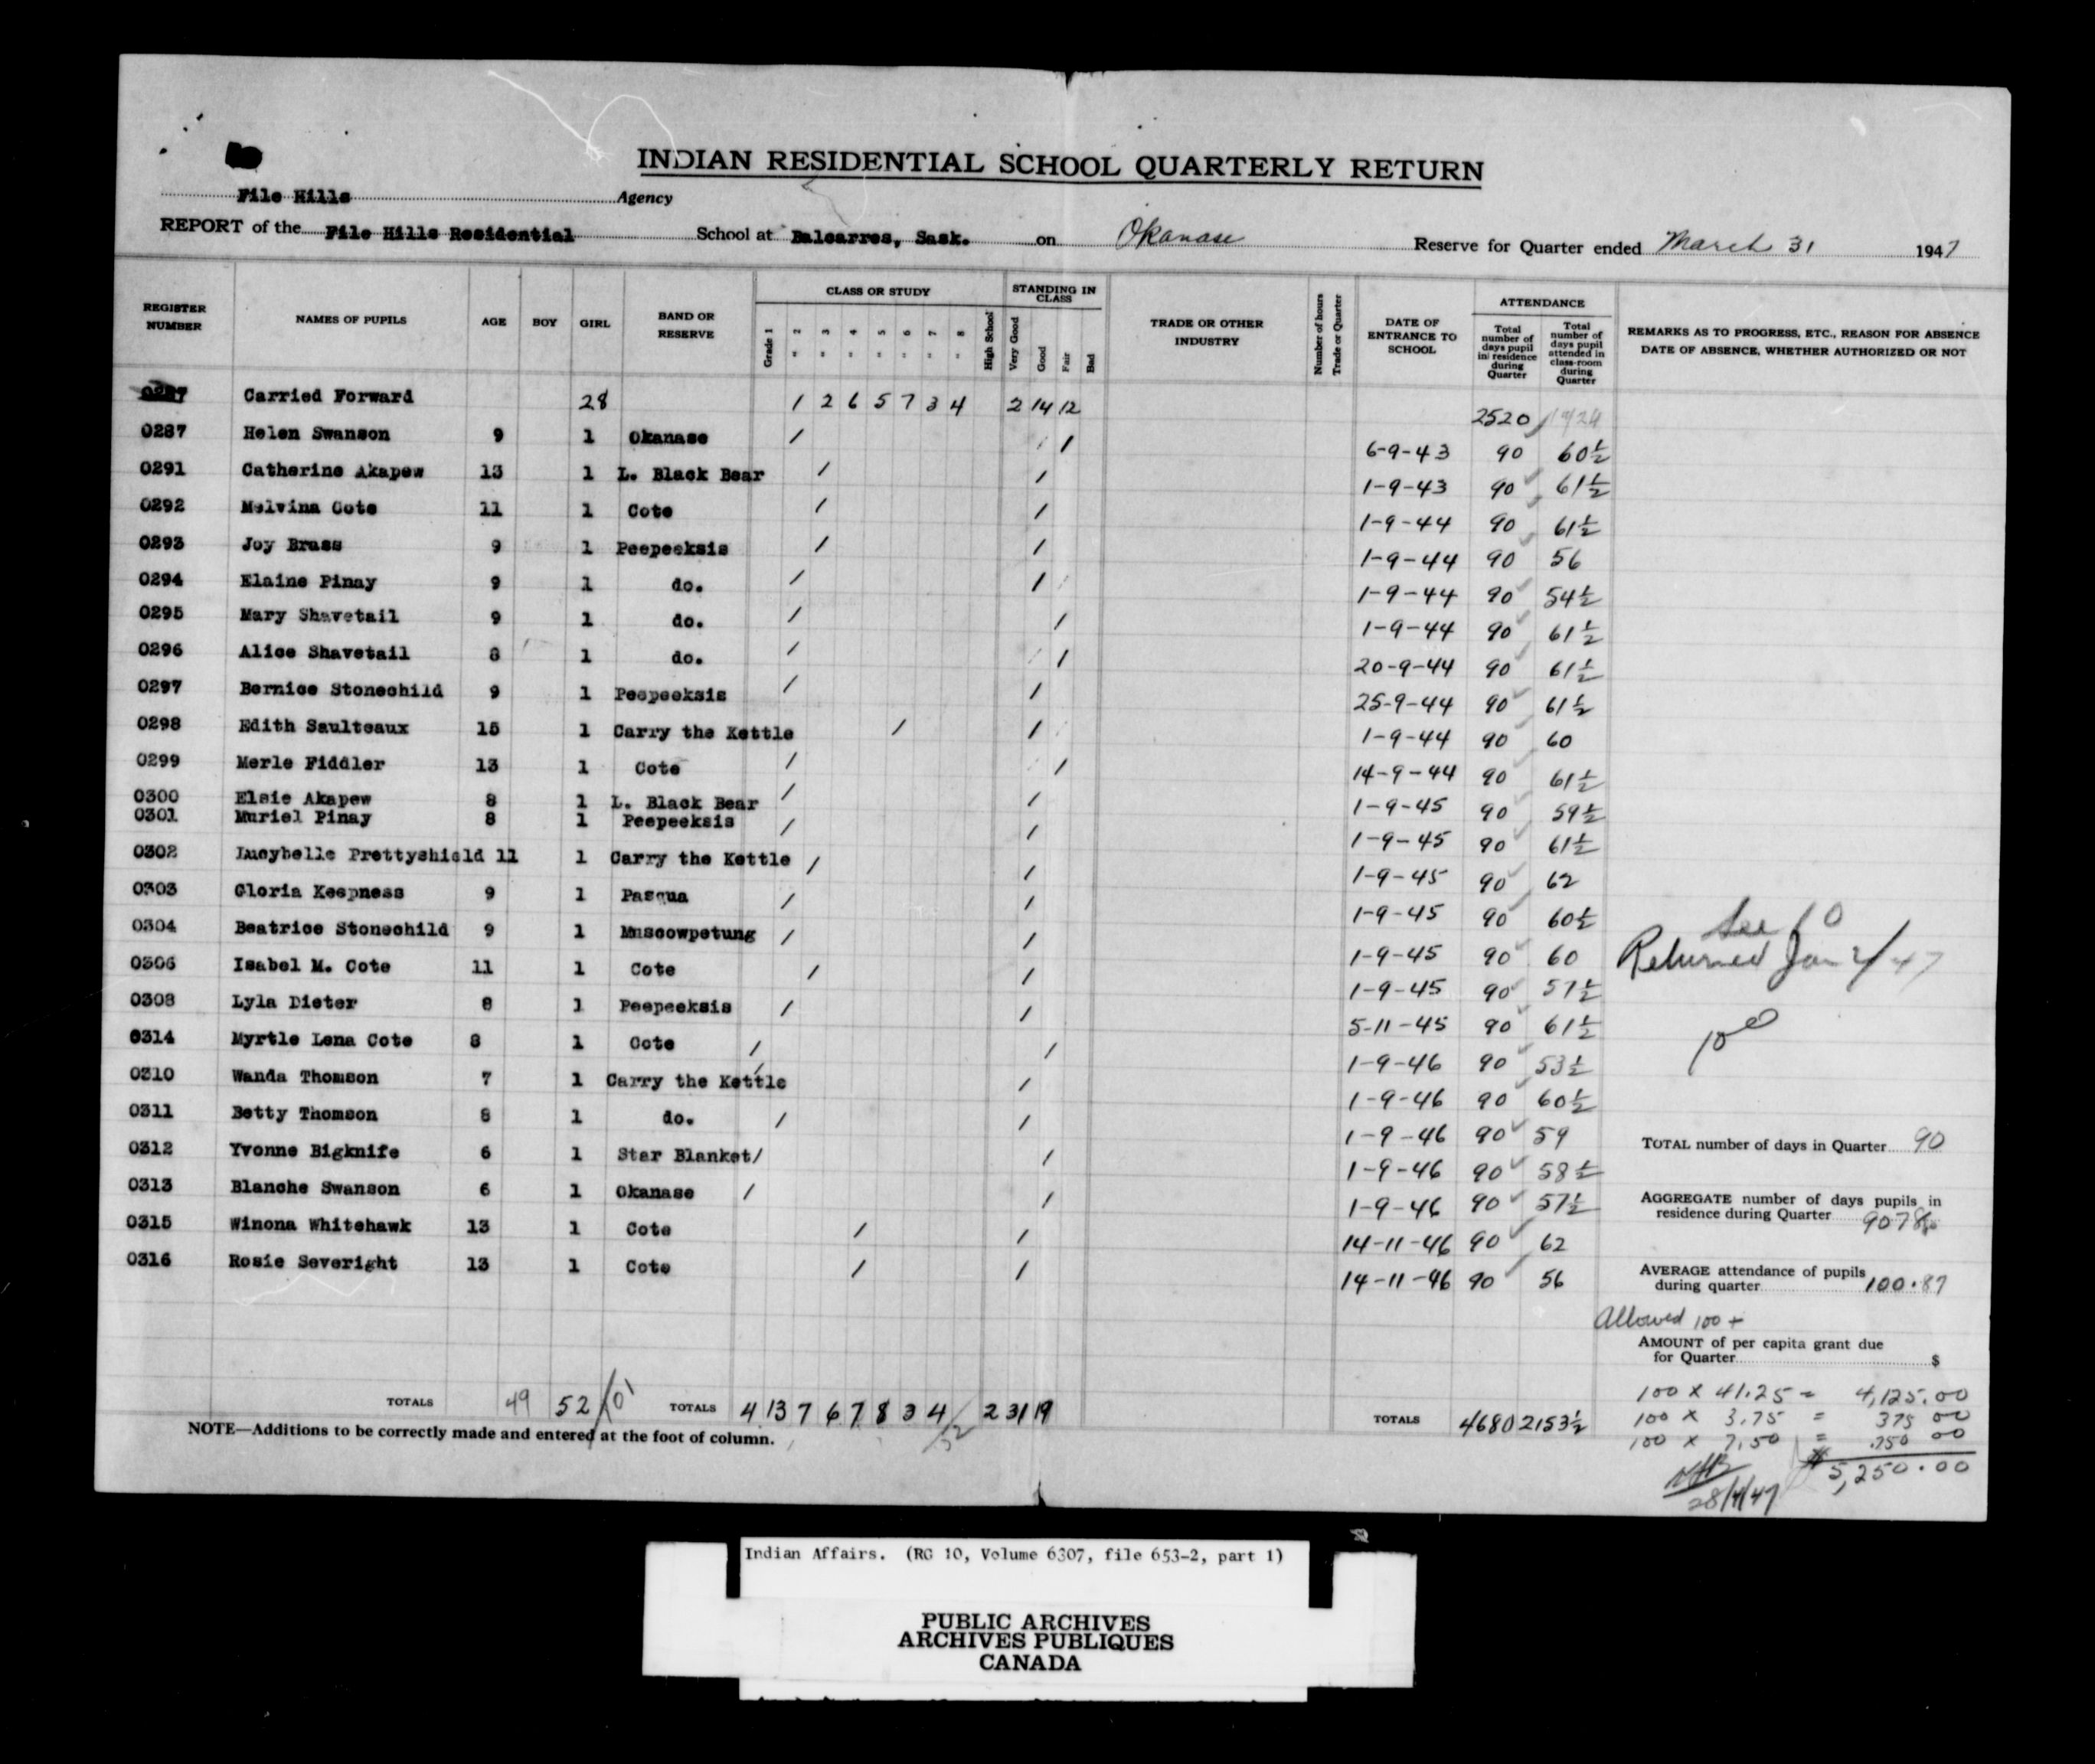 INDIAN RESIDENTIAL SCHOOL QUARTERLY RETURN
File Hills Agency
REPORT of the File Hills Residential School at Balcarres, Sask. on Okanase Reserve for Quarter ended March 31 1947
REGISTER NUMBER NAMES OF PUPILS AGE BOY GIRL BAND OR RESERVE CLASS OR STUDY Grade 1 " 2 " 3 " 4 " 5 " 6 " 7 " 8 High School STANDING IN CLASS Very Good Good Fair Bad TRADE OR OTHER INDUSTRY Number of hours Trade or Quarter DATE OF ENTRANCE TO SCHOOL ATTENDANCE Total number of days pupil in residence during Quarter Total number of days pupil attended in class-room during Quarter REMARKS AS TO PROGRESS, ETC., REASON FOR ABSENCE DATE OF ABSENCE, WHETHER AUTHORIZED OR NOT
0287 Carried Forward 28 1 2 6 5 7 3 4 2 14 12 2520
0287 Helen Swanson 9 1 Okanase / / 6-9-43 90 60½
0291 Catherine Akapew 13 1 L. Black Bear / / 1-9-43 90 61½
0292 Melvina Cote 11 1 Cote / / 1-9-44 90 61½
0293 Joy Brass 9 1 Peepeeksis / / 1-9-44 90 56
0294 Elaine Pinay 9 1 do. / / 1-9-44 90 54½
0295 Mary Shavetail 9 1 do. / / 1-9-44 90 61½
0296 Alice Shavetail 8 1 do. / / 20-9-44 90 61½
0297 Bernice Stonechild 9 1 Peepeeksis / / 25-9-44 90 61½
0298 Edith Saulteaux 15 1 Carry the Kettle / / 1-9-44 90 60
0299 Merle Fiddler 13 1 Cote / / 14-9-44 90 61½
0300 Elsie Akapew 8 1 L. Black Bear / / 1-9-45 90 59½
0301 Muriel Pinay 8 1 Peepeeksis / / 1-9-45 90 61½
0302 Lucybelle Prettyshield 11 1 Carry the Kettle / / 1-9-45 90 62
0303 Gloria Keepness 9 1 Pasqua / / 1-9-45 90 60½
0304 Beatrice Stonechild 9 1 Muscowpetung / / 1-9-45 90 60
0306 Isabel M. Cote 11 1 Cote / / 1-9-45 90 57½ Returned Jan 2/47
0308 Lyla Dieter 8 1 Peepeeksis / / 5-11-45 90 61½
0314 Myrtle Lena Cote 8 1 Cote / / 1-9-46 90 53½
0310 Wanda Thomson 7 1 Carry the Kettle / / 1-9-46 90 60½
0311 Betty Thomson 8 1 do. / / 1-9-46 90 59
0312 Yvonne Bigknife 6 1 Star Blanket / / 1-9-46 90 58½
0313 Blanche Swanson 6 1 Okanase / / 1-9-46 90 57½
0315 Winona Whitehawk 13 1 Cote / / 14-11-46 90 62
0316 Rosie Severight 13 1 Cote / / 14-11-46 90 56
TOTAL number of days in Quarter 90
AGGREGATE number of days pupils in residence during Quarter 9078
AVERAGE attendance of pupils during quarter 100.87
Allowed 100 +
AMOUNT of per capita grant due for Quarter $
100 x 41.25 = 4,125.00
100 x 3.75 = 375 00
100 x 7.50 = 750 00
$5,250.00
28/4/47
TOTALS 49 52 TOTALS 4 13 7 6 7 8 3 4 2 31 19 TOTALS 4680 2153½
NOTE—Additions to be correctly made and entered at the foot of column.
Indian Affairs. (RG 10, Volume 6307, file 653-2, part 1)
PUBLIC ARCHIVES
ARCHIVES PUBLIQUES
CANADA